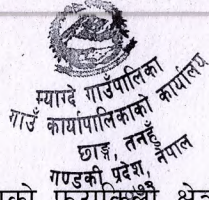 म्याग्दे गाउँपालिका
गाउँ कार्यपालिकाको कार्यालय
छाङ्ग, तनहुँ
गण्डकी प्रदेश, नेपाल